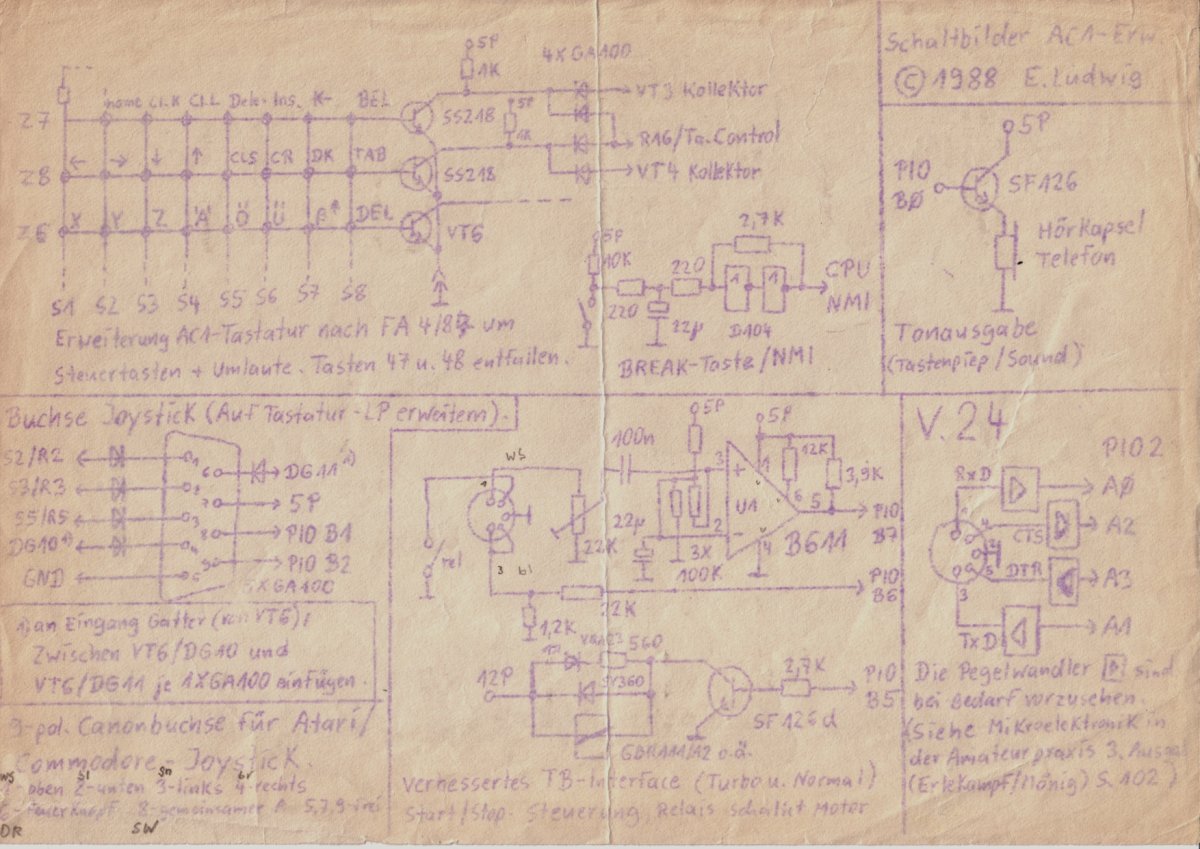 Schaltbilder AC1-Erw.
© 1988 E.Ludwig
5P
1K
4XGA100
home CLR CLL Dele. Ins. K← BEL
Z7
SS218
5P
1K
VT3 Kollektor
R16/Ta.Control
VT4 Kollektor
← → ↓ ↑ CLS CR DK TAB
Z8
SS218
X Y Z 'A' Ö Ü β↑ DEL
Z6
VT6
S1 S2 S3 S4 S5 S6 S7 S8
Erweiterung AC1-Tastatur nach FA 4/87 um
Steuertasten + Umlaute. Tasten 47 u. 48 entfallen.
5P
10K
220
220
22µ
2,7K
1 1
D104
CPU
NMI
BREAK-Taste/NMI
5P
PIO
BØ
SF126
Hörkapsel
Telefon
Tonausgabe
(Tastenpiep/Sound)
Buchse Joystick (Auf Tastatur-LP erweitern).
S2/R2 1
6 DG11 1)
S3/R3 2
7 5P
S5/R5 3
8 PIO B1
DG10 1) 4
9 PIO B2
GND 5
6XGA100
1) an Eingang Gatter (von VT6);
Zwischen VT6/DG10 und
VT6/DG11 je 1XGA100 einfügen.
9-pol. Canonbuchse für Atari/
Commodore-Joystick.
ws bl gn br
1-oben 2-unten 3-links 4-rechts
6-Feuerknopf 8-gemeinsamer A. 5,7,9-frei
OR SW
ws
1
rel
3 bl
22K
100n
5P
5P
12K
3,9K
3
+
1
U1
6
5
2
-
4
B611
22µ
3X
100K
PIO
B7
22K
PIO
B6
1,2K
560
12P
SY360
GBRAM/12 o.ä.
SF126d
2,7K
PIO
B5
verbessertes TB-Interface (Turbo u. Normal)
Start/Stop Steuerung, Relais schaltet Motor
V.24
PIO2
RxD
AØ
CTS
A2
DTR
A3
3
TxD
A1
Die Pegelwandler ▷ sind
bei Bedarf vorzusehen.
(Siehe Mikroelektronik in
der Amateurpraxis 3. Ausga
(Erlekampf/Mönig) S. 102)